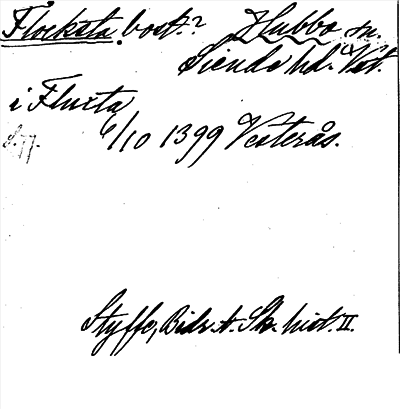 Flocksta, bost.? Hubbo sn.
Siende hd. Vst.
i Flucta
6/10 1399 Vesterås.
Styffe, Bidr. t. Sk. hist. II.